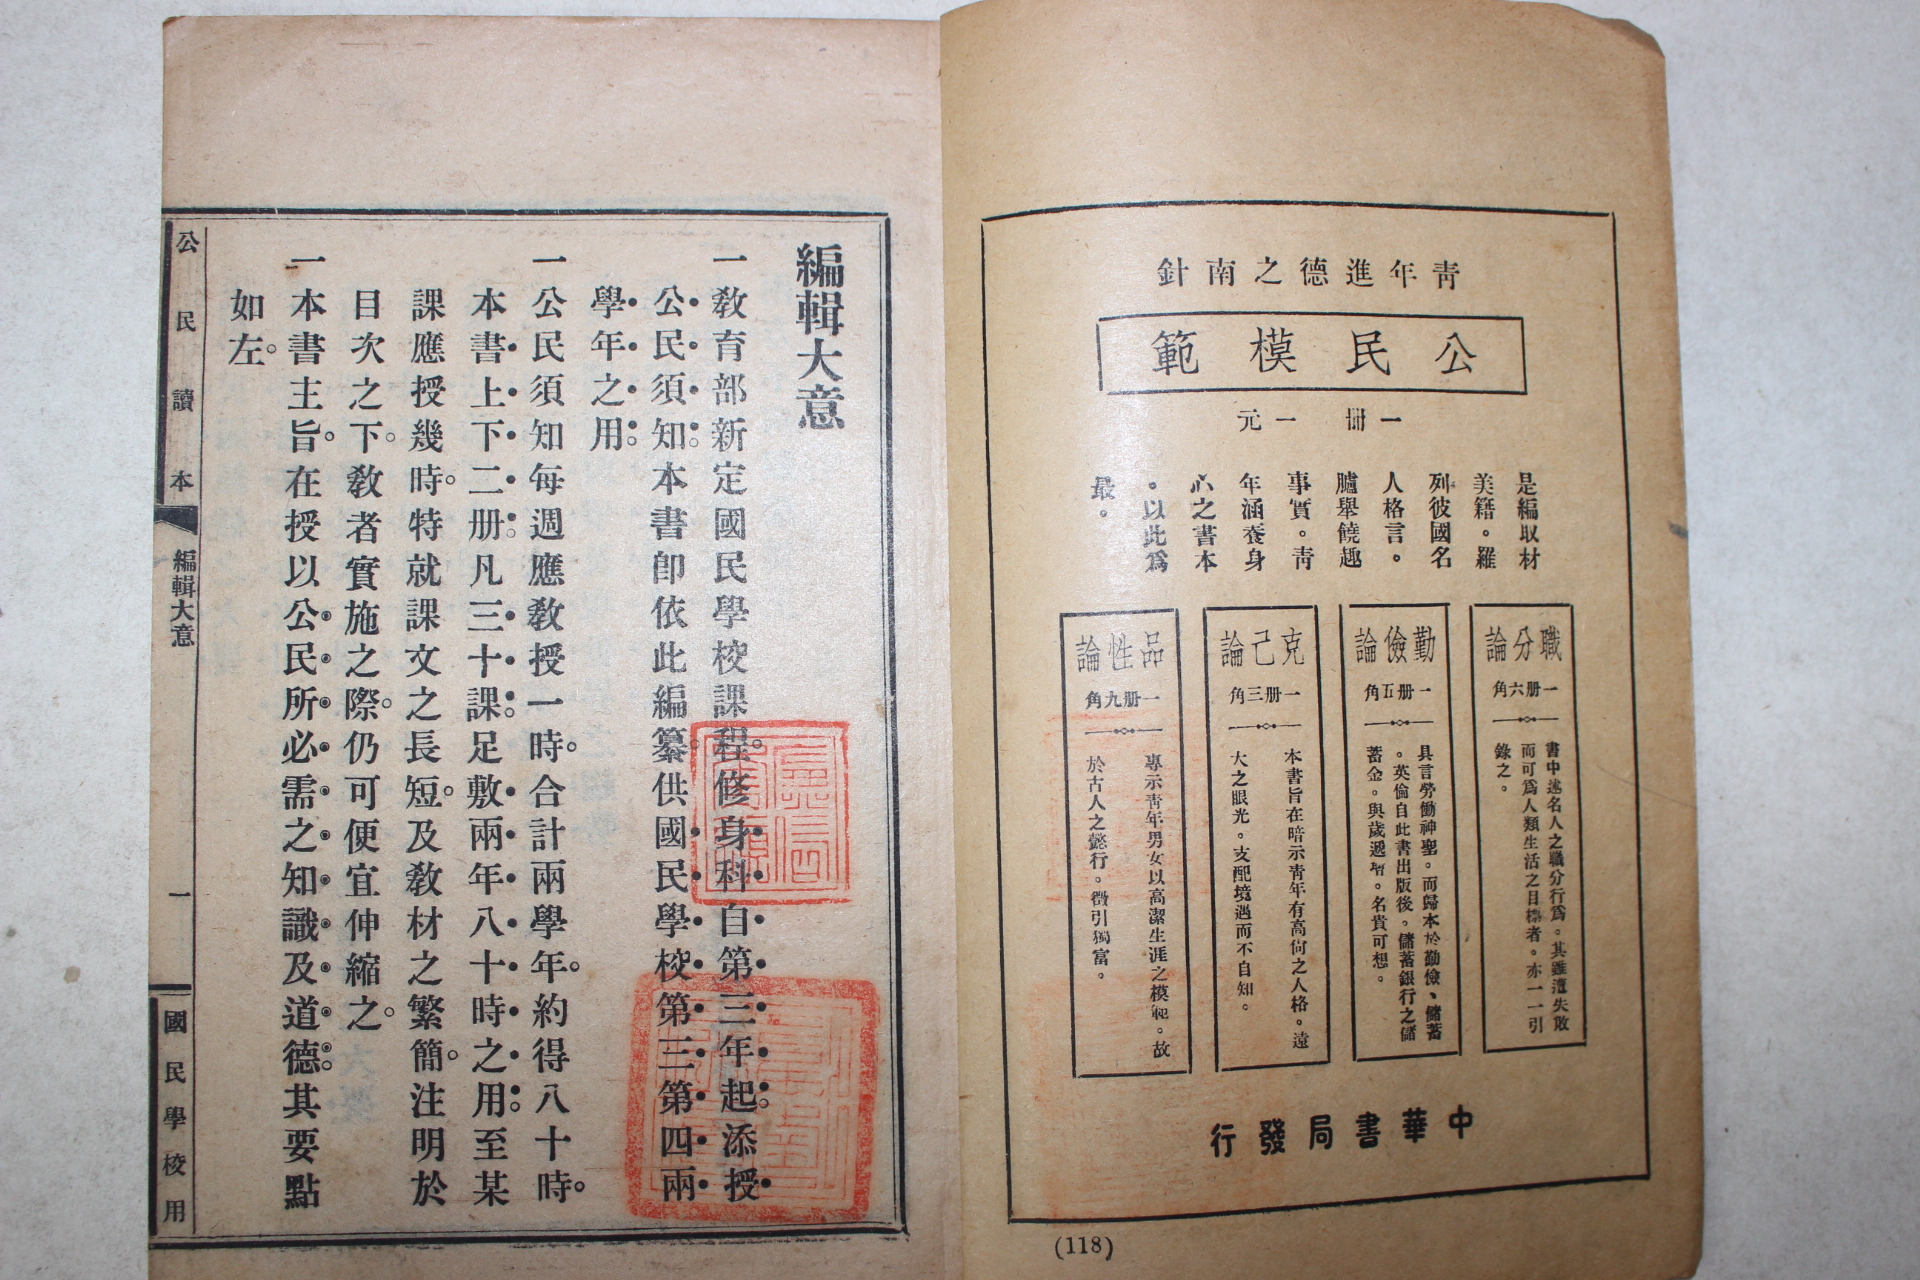 靑年進德之南針
公民模範
一冊 一元
是編取材
美籍。羅
列彼國名
人格言。
臚舉饒趣
事實。靑
年涵養身
心之書本
。以此爲
最。
職分論
一册六角
書中述名人之職分行爲。其雖遭失敗
而可爲人類生活之目標者。亦一一引
錄之。
勤儉論
一册五角
具言勞働神聖。而歸本於勤儉、儲蓄
。英倫自此書出版後。儲蓄銀行之儲
蓄金。與歲遞增。名貴可想。
克己論
一册三角
本書旨在暗示靑年有高尙之人格。遠
大之眼光。支配境遇而不自知。
品性論
一册九角
專示靑年男女以高潔生涯之模範。故
於古人之懿行。徵引獨富。
中華書局發行
(118)
編輯大意
一敎育部新定國民學校課程。修身科自第三年起。添授
公民須知。本書卽依此編纂。供國民學校第三第四兩
學年之用。
一公民須知每週應敎授一時。合計兩學年。約得八十時。
本書上下二册。凡三十課。足敷兩年八十時之用。至某
課應授幾時。特就課文之長短。及敎材之繁簡。注明於
目次之下。敎者實施之際。仍可便宜伸縮之。
一本書主旨。在授以公民所必需之知識及道德。其要點
如左。
公民讀本
編輯大意
一
國民學校用